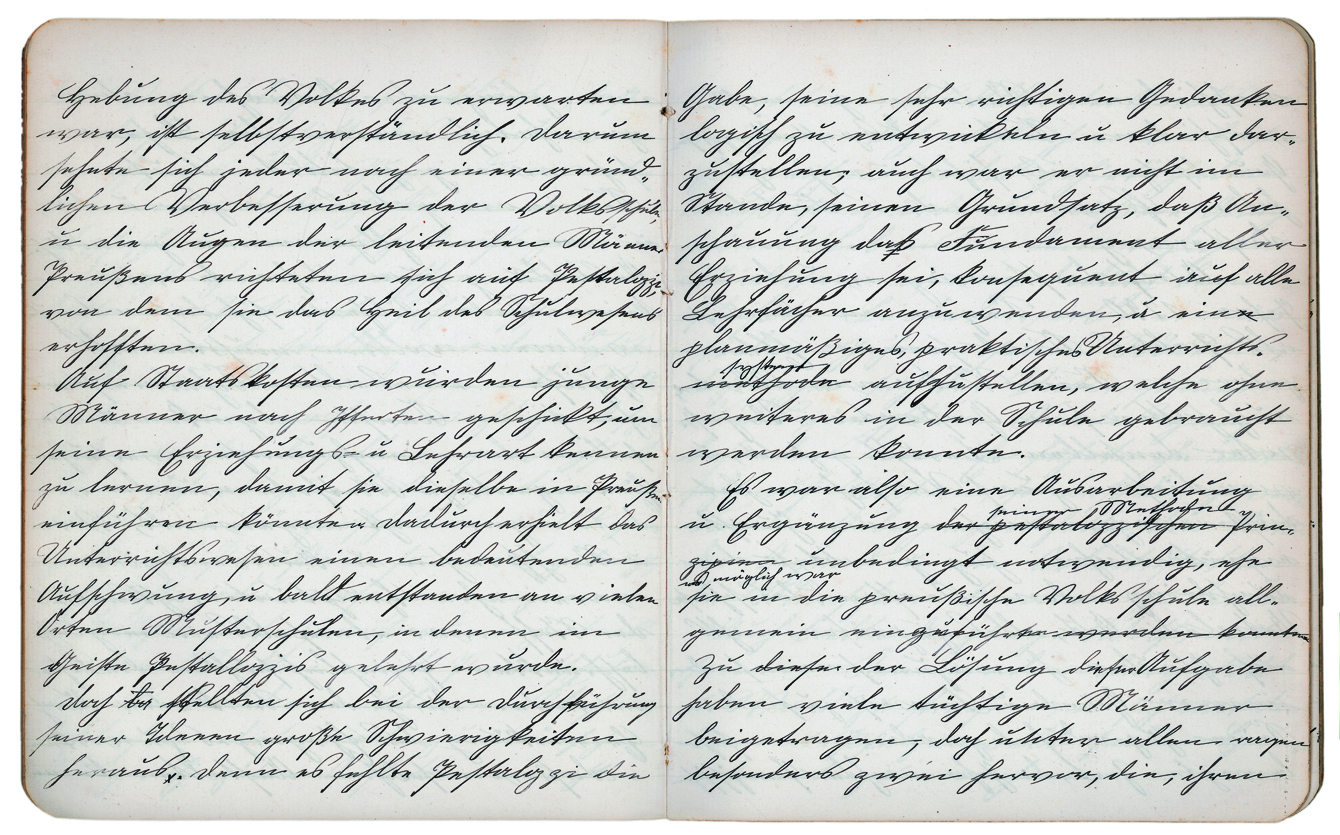 Hebung des Volkes zu erwarten
war, ist selbstverständlich. Darum
sehnte sich jeder nach einer gründ-
lichen Verbesserung der Volksschule,
u die Augen der leitenden Männer
Preußens richteten sich auf Pestalozzi,
von dem sie das Heil des Schulwesens
erhofften.
Auf Staatskosten wurden junge
Männer nach Iferten geschickt, um
seine Erziehungs- u Lehrart kennen
zu lernen, damit sie dieselbe in Preußen
einführen könnten. Dadurch erhielt das
Unterrichtswesen einen bedeutenden
Aufschwung, u bald entstanden an vielen
Orten Musterschulen, in denen im
Geiste Pestallozzis gelehrt wurde.
Doch stellten sich bei der Durchführung
seiner Ideeen große Schwierigkeiten
heraus. Denn es fehlte Pestalozzi die
Gabe, seine sehr richtigen Gedanken
logisch zu entwickeln u klar dar-
zustellen; auch war er nicht im
Stande, seinen Grundsatz, daß An-
schauung das Fundament aller
Erziehung sei, konsequent auf alle
Lehrfächer anzuwenden, u ein
planmäßiges, praktisches Unterrichts-
system
methode aufzustellen, welche ohne
weiteres in der Schule gebraucht
werden konnte.
Es war also eine Ausarbeitung
seiner Methode
u. Ergänzung der pestalozzischen Prin-
zipien unbedingt notwendig, ehe
es möglich war
sie in die preußische Volksschule all-
gemein einzuführen werden konnten
Zu dieser der Lösung dieser Aufgabe
haben viele tüchtige Männer
beigetragen, doch unter allen ragen
besonders zwei hervor, die, ihren